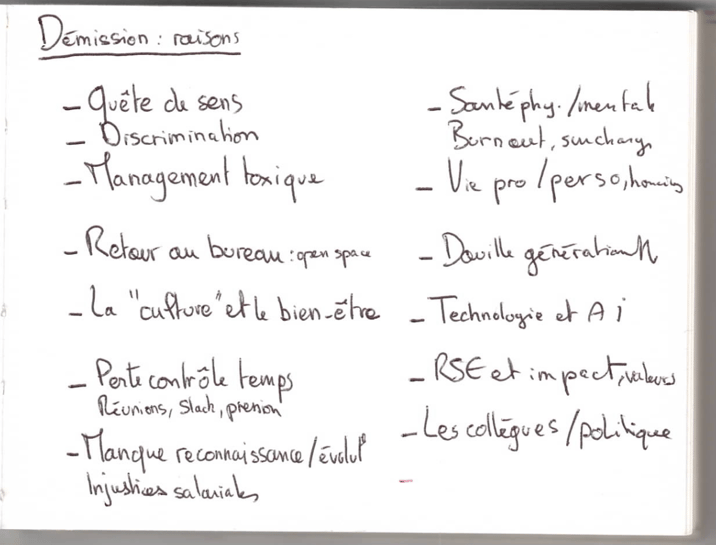 Démission : raisons
- Quête de sens
- Discrimination
- Management toxique
- Retour au bureau : open space
- La "culture" et le bien-être
- Perte contrôle temps
Réunions, Slack, pression
- Manque reconnaissance / évolut°
Injustices salariales
- Santé phy. / mentale
Burnout, surcharge
- Vie pro / perso, horaires
- Douille générationN
- Technologie et AI
- RSE et impact, valeurs
- Les collègues / politique